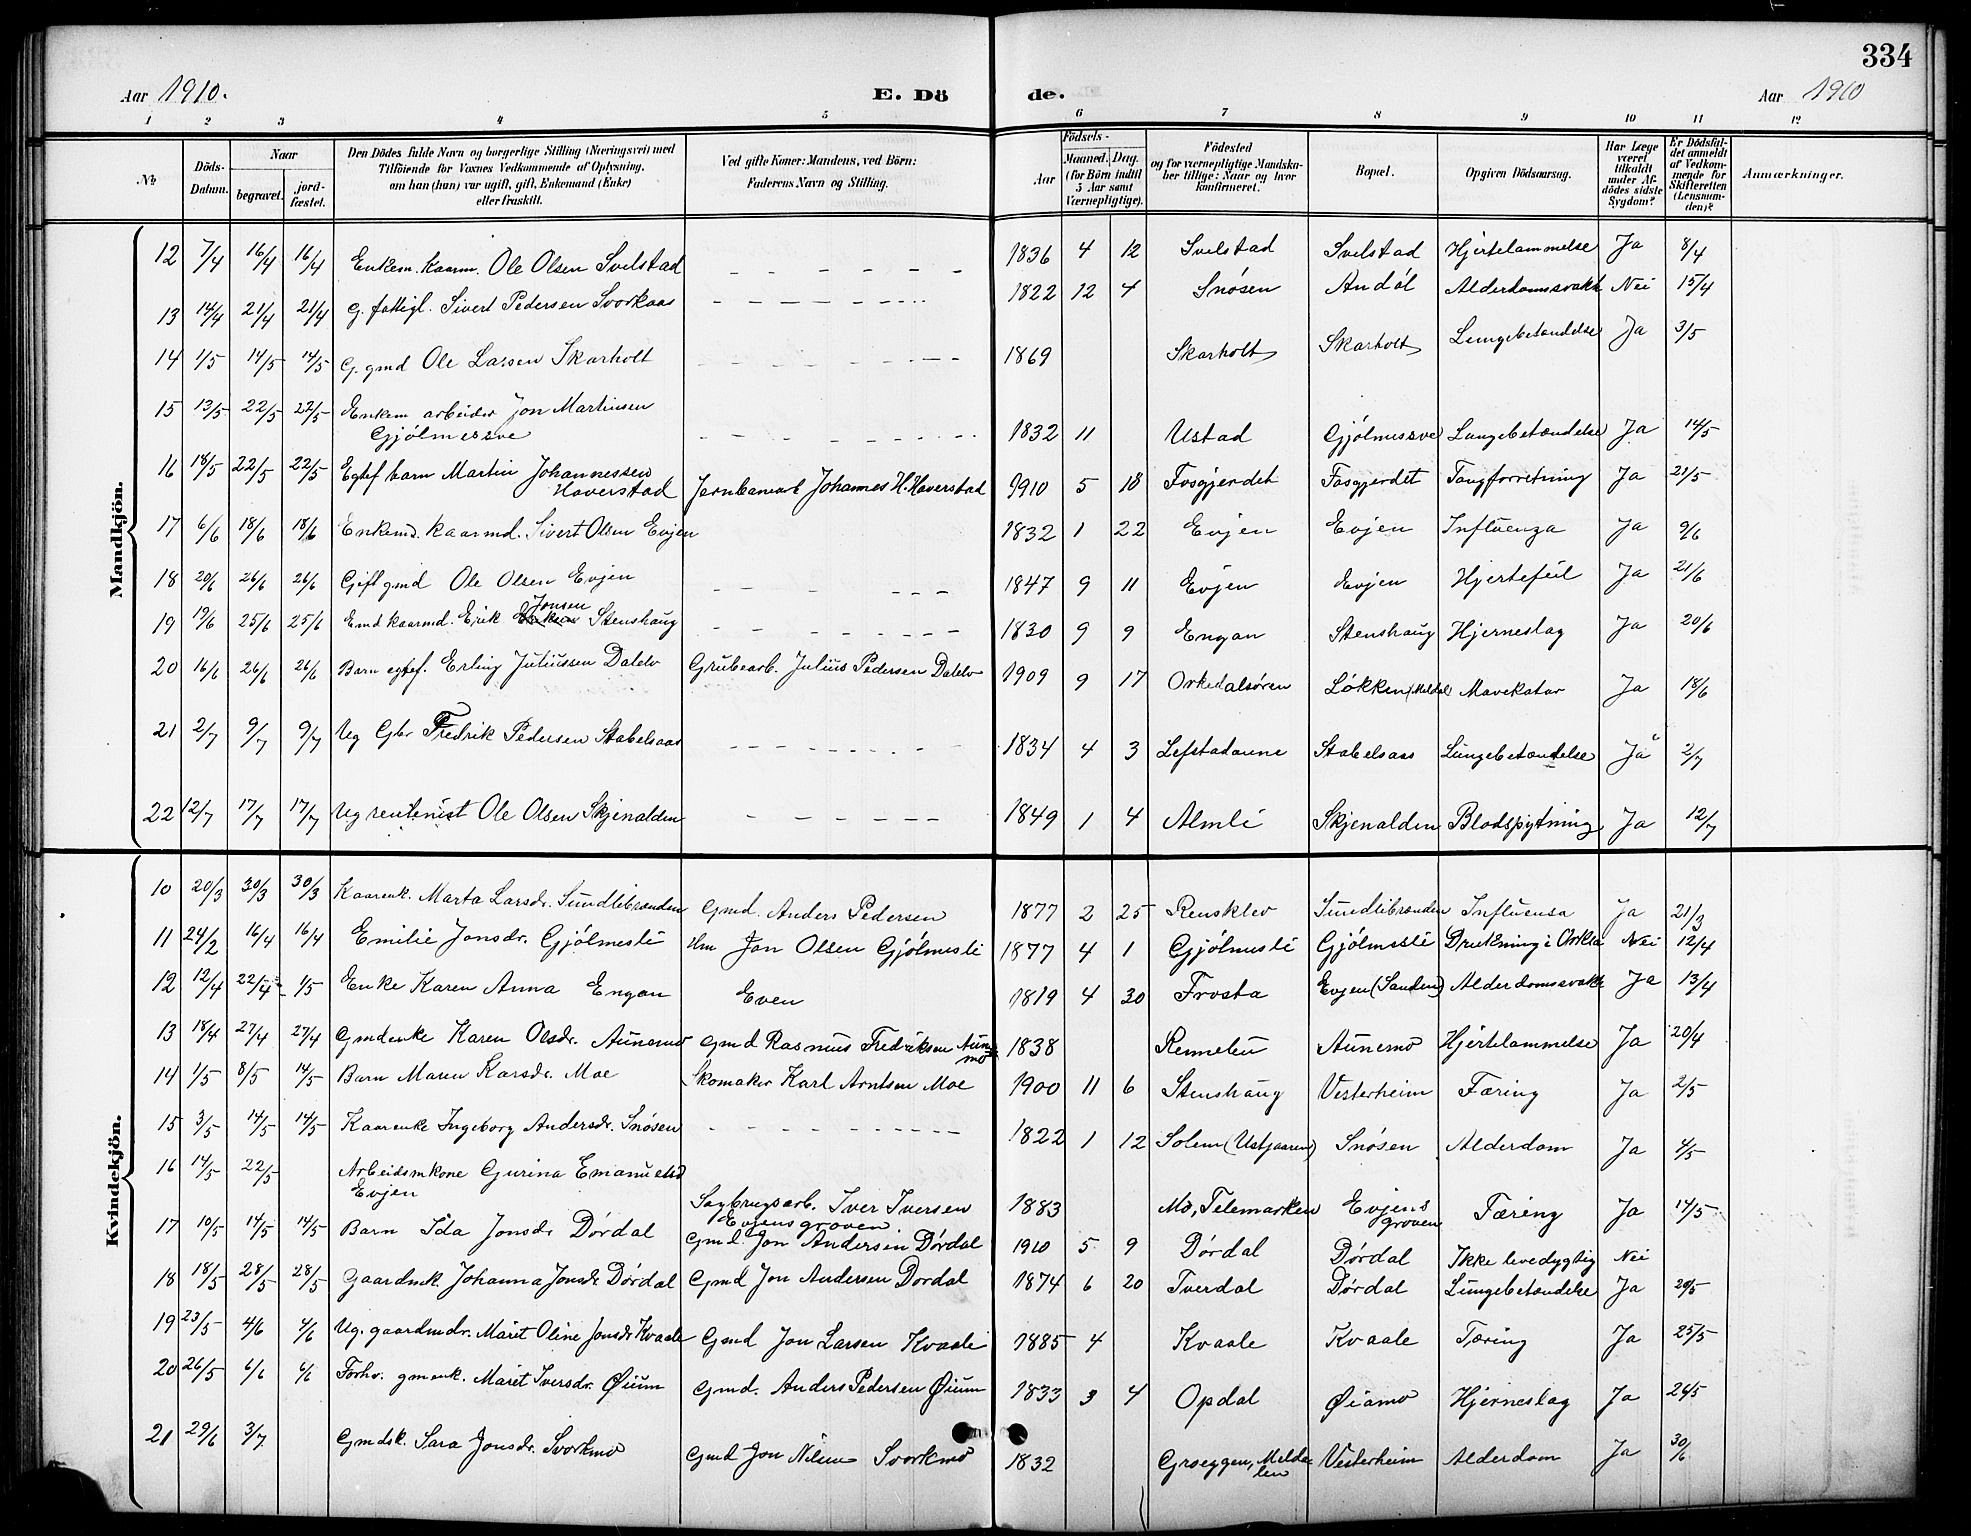 334
Aar 1910. E. Dö de. Aar 1910
1 2 3 4 5 6 7 8 9 10 11 12
№ Döds-Datum. Naar begravet. jordfæstet. Den Dödes fulde Navn og borgerlige Stilling (Næringsvei) med Tilföiende for Voxnes Vedkommende af Oplysning, om han (hun) var ugift, gift, Enkemand (Enke) eller fraskilt. Ved gifte Koner: Mandens, ved Börn: Faderens Navn og Stilling. Aar Födsels- Maaned. Dag. (for Börn indtil 5 Aar samt Værnepligtige). Födested og for værnepligtige Mandskaber tillige: Naar og hvor konfirmeret. Bopæl. Opgiven Dödsaarsag. Har Læge været tilkaldt under Afdödes sidste Sygdom? Er Dödsfaldet anmeldt af Vedkommende for Skifteretten (Lensmanden)? Anmærkninger.
Mandkjön.
12 7/4 16/4 16/4 Enkem. kaarm. Ole Olsen Svelstad - - - - - - 1836 4 12 Svelstad Svelstad Hjertelammelse Ja 8/4
13 14/4 21/4 21/4 G. fattigl. Sivert Pedersen Svorkaas - - - - - - 1822 12 4 Snösen Andöl Alderdomssvakh Nei 15/4
14 1/5 14/5 14/5 G. gmd Ole Larsen Skarholt - - - - - - 1869 Skarholt Skarholt Lungebetændelse Ja 3/5
15 13/5 22/5 22/5 Enkem arbeider Jon Martinsen
Gjölmesøve - - - - - - 1832 11 Ustad Lungebetændelse Ja 14/5
16 18/5 22/5 22/5 Egtef barn Martin Johannessen
Haverstad Jernbanearb Johannes H. Haverstad 1910 5 18 Fosgjerdet Fosgjerdet Tangforretning Ja 21/5
17 6/6 18/6 18/6 Enkemd. kaarmd. Sivert Olsen Evjen 1832 1 22 Evjen Evjen Influenza Ja 9/6
18 20/6 26/6 26/6 Gift gmd Ole Olsen Evjen - - - - - - 1847 9 11 Evjen Evjen Hjertefeil Ja 21/6
Jonsen
19 19/6 25/6 25/6 Emd kaarmd. Erik Eriksen Stenshaug - - - - - - 1830 9 9 Engan Stenshaug Hjerneslag Ja 20/6
20 16/6 26/6 26/6 Barn egtef. Erling Juliussen Dalelv Grubearb. Julius Pedersen Dalelv 1909 9 17 Orkedalsören Løkken (Meldal) Mavekatar Ja 18/6
21 2/7 9/7 9/7 Ug Gbr Fredrik Pedersen Stabelsaas - - - - - - 1834 4 3 Stabelsaas Lungebetændelse Ja 2/7
22 12/7 17/7 17/7 Ug rentenist Ole Olsen Skjenalden - - - - - - 1849 1 4 Almli Skjenalden Blodspytning Ja 12/7
Kvindekjön.
10 20/3 30/3 30/3 Kaarenk. Marta Larsdr. Sundlibrænden Gmd. Anders Pedersen 1877 2 25 Rensklev Sundlibrænden Influensa Ja 21/3
11 24/2 16/4 16/4 Emilie Jonsdr. Gjölmesli Hm Jon Olsen Gjölmesli 1877 4 1 Gjölmesli Gjölmesli Drukning i Orkla Nei 12/4
12 12/4 22/4 1/5 Enke Karen Anna Engan Even 1819 4 30 Frosta Evjen (Sanden) Alderdomssvakh Ja 13/4
13 18/4 27/4 27/4 Gmdenke Karen Olsdr. Aunemo Gmd Rasmus Fredriksen Aune
mo 1838 Rennebu Aunemo Hjertelammelse Ja 20/4
14 1/5 8/5 14/5 Barn Maren Karsdr. Moe Skomaker Karl Arntsen Moe 1900 11 6 Stenshaug Vesterheim Tæring Ja 2/5
15 3/5 14/5 14/5 Kaarenke Ingeborg Andersdr. Snösen - - - - - - 1822 1 12 Solem (Ustjaaren) Snösen Alderdom Ja 4/5
16 14/5 22/5 Arbeidsmkone Gurina Emanuelsd
Evjen Sagbrugsarb. Iver Iversen
Evjensgroven 1883 Mo, Telemarken Evjens
groven Tæring Ja 14/5
17 10/5 14/5 14/5 Barn Ida Jonsdr Dördal Gmd. Jon Andersen Dördal 1910 5 9 Dördal Dördal Ikke levedygtig Nei
18 18/5 28/5 28/5 Gaardmk. Johanna Jonsdr Dördal Gmd Jon Andersen Dordal 1874 6 20 Tverdal Dördal Lungebetændelse Ja 20/5
19 23/5 4/6 4/6 Ug. gaardmdr. Marit Oline Jonsdr Kvaale Gmd Jon Larsen Kvaale 1885 4 Kvaale Kvaale Tæring Ja 25/5
20 26/5 6/6 6/6 Forhv. gmenk. Marit Iversdr. Øium Gmd. Anders Pedersen Øium 1833 3 4 Opdal Øiamo Hjerneslag Ja 26/5
21 29/6 3/7 Gmdsk. Sara Jonsdr. Svorkmo Gmd Jon Nilsen Svorkmo 1832 Groeggen, Melda-
len Vesterheim Alderdom Ja 30/6